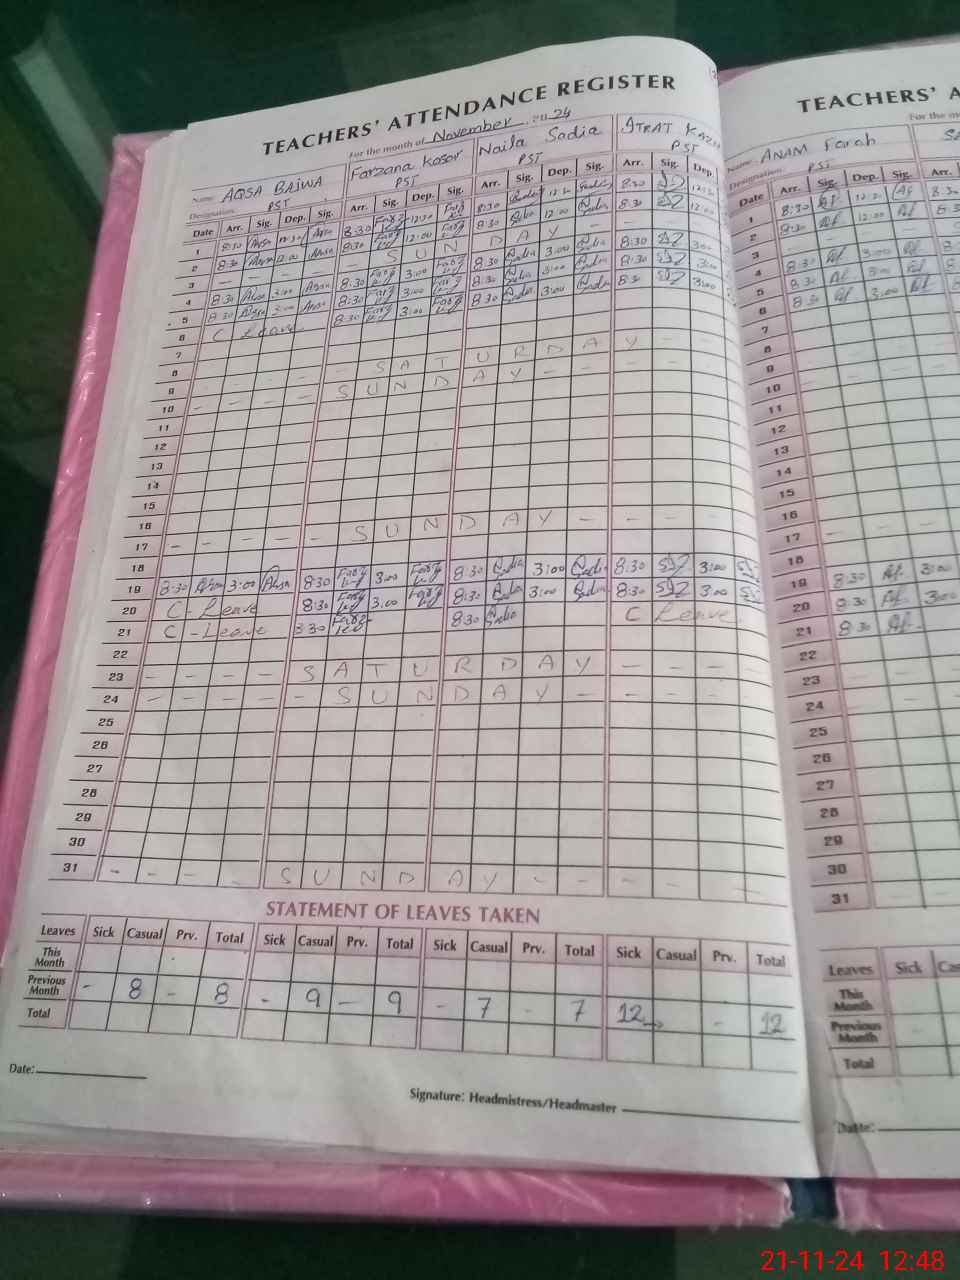 TEACHERS' ATTENDANCE REGISTER
For the month of November 2024
Name: AQSA BAJWA Farzana Kosar Naila Sadia ITRAT
Designation: PST PST PST PST
Date Arr. Sig. Dep. Sig. Arr. Sig. Dep. Sig. Arr. Sig. Dep. Sig. Arr. Sig. Dep.
1 8:30 Aqsa 12:30 Aqsa 8:30 Farz 12:30 Farz 8:30 Sadia 12:30 Sadia 8:30 12:30
2 8:30 Aqsa 12:00 Aqsa 8:30 Farz 12:00 Farz 8:30 Sadia 12:00 Sadia 8:30 12:00
3 - - - - - S U N D A Y -
4 8:30 Aqsa 3:00 Aqsa 8:30 Farz 3:00 Farz 8:30 Sadia 3:00 Sadia 8:30 3:00
5 8:30 Aqsa 3:00 Aqsa 8:30 Farz 3:00 Farz 8:30 Sadia 3:00 Sadia 8:30 3:00
6 C Leave 8:30 Farz 3:00 Farz 8:30 Sadia 3:00 Sadia 8:30 3:00
7
8
9 - - - - - S A T U R D A Y - -
10 - - - - S U N D A Y - - -
11
12
13
14
15
16
17 - - - - - S U N D A Y - - - -
18
19 8:30 Aqsa 3:00 Aqsa 8:30 Farz 3:00 Farz 8:30 Sadia 3:00 Sadia 8:30 3:00
20 C - Leave 8:30 Farz 3:00 Farz 8:30 Sadia 3:00 Sadia 8:30 3:00
21 C - Leave 8:30 Farz 8:30 Sadia C Leave
22
23 - - - - S A T U R D A Y - - - -
24 - - - - - S U N D A Y - - - -
25
26
27
28
29
30
31 - - - - S U N D A Y - - - - -
STATEMENT OF LEAVES TAKEN
Leaves Sick Casual Prv. Total Sick Casual Prv. Total Sick Casual Prv. Total Sick Casual Prv. Total
This Month
Previous Month - 8 - 8 - 9 - 9 - 7 - 7 12 - 12
Total
Date:
Signature: Headmistress/Headmaster
TEACHERS' A
For the mo
Name: ANAM Farah
Designation: PST
Date Arr. Sig. Dep. Sig. Arr.
1 8:30 Af 12:30 Af 8:30
2 8:30 Af 12:00 Af
3
4 8:30 Af 3:00 Af
5 8:30 Af 3:00 Af
6 8:30 Af 3:00 Af
7
8
9
10
11
12
13
14
15
16
17
18
19 8:30 Af 3:00
20 8:30 Af 3:00
21 8:30 Af
22
23
24
25
26
27
28
29
30
31
Leaves Sick Cas
This Month
Previous Month
Total
Date:
21-11-24 12:48